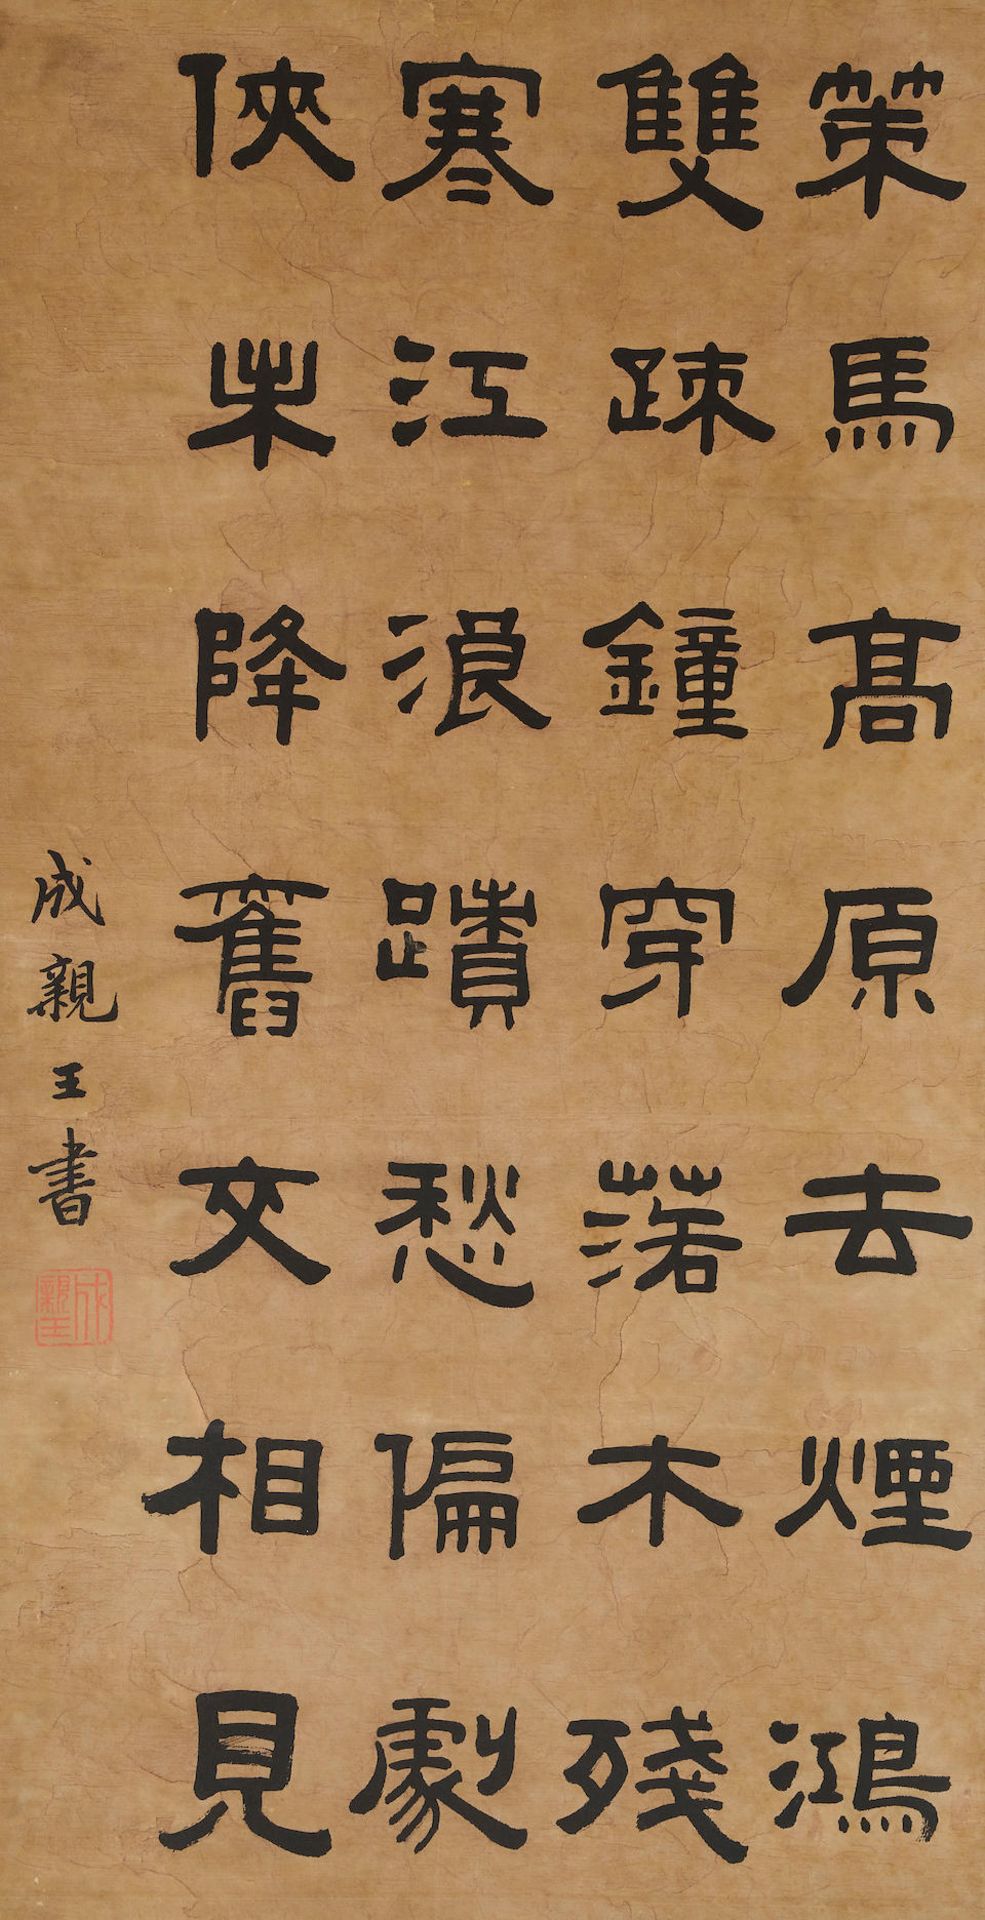 策馬高原去煙鴻
雙踈鐘穿落木殘
寒江浪蹟愁偏劇
俠少降舊文相見
成親王書
成親王